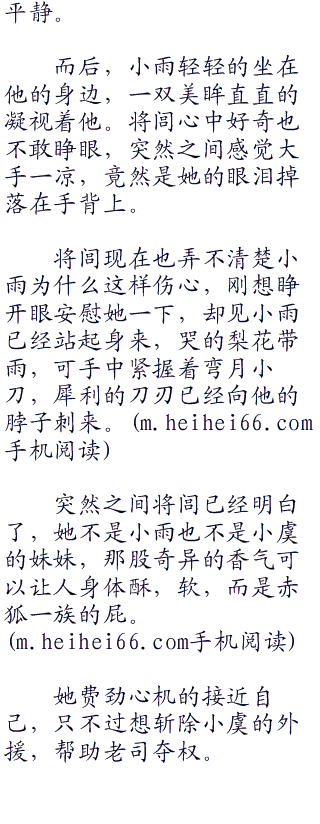 平静。
而后，小雨轻轻的坐在
他的身边，一双美眸直直的
凝视着他。将闾心中好奇也
不敢睁眼，突然之间感觉大
手一凉，竟然是她的眼泪掉
落在手背上。
将闾现在也弄不清楚小
雨为什么这样伤心，刚想睁
开眼安慰她一下，却见小雨
已经站起身来，哭的梨花带
雨，可手中紧握着弯月小
刀，犀利的刀刃已经向他的
脖子刺来。(m.heihei66.com
手机阅读)
突然之间将闾已经明白
了，她不是小雨也不是小虞
的妹妹，那股奇异的香气可
以让人身体酥，软，而是赤
狐一族的屁。
(m.heihei66.com手机阅读)
她费劲心机的接近自
己，只不过想斩除小虞的外
援，帮助老司夺权。